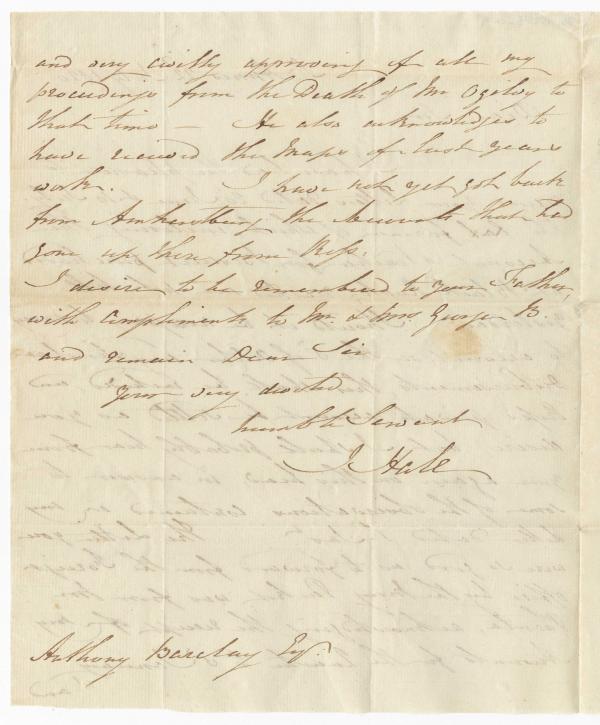 and very civilly approving of all my
proceedings from the Death of Mr Ogilvy to
that time — He also acknowledges to
have received the Maps of last years
work. I have not yet got back
from Amherstburg the accounts that had
gone up there from Ross.
I desire to be remembered to your Father,
with compliments to Mr. & Mrs. George B.
and remain Dear Sir
your very devoted
humble Servant
J Hale
Anthony Barclay Esqr.